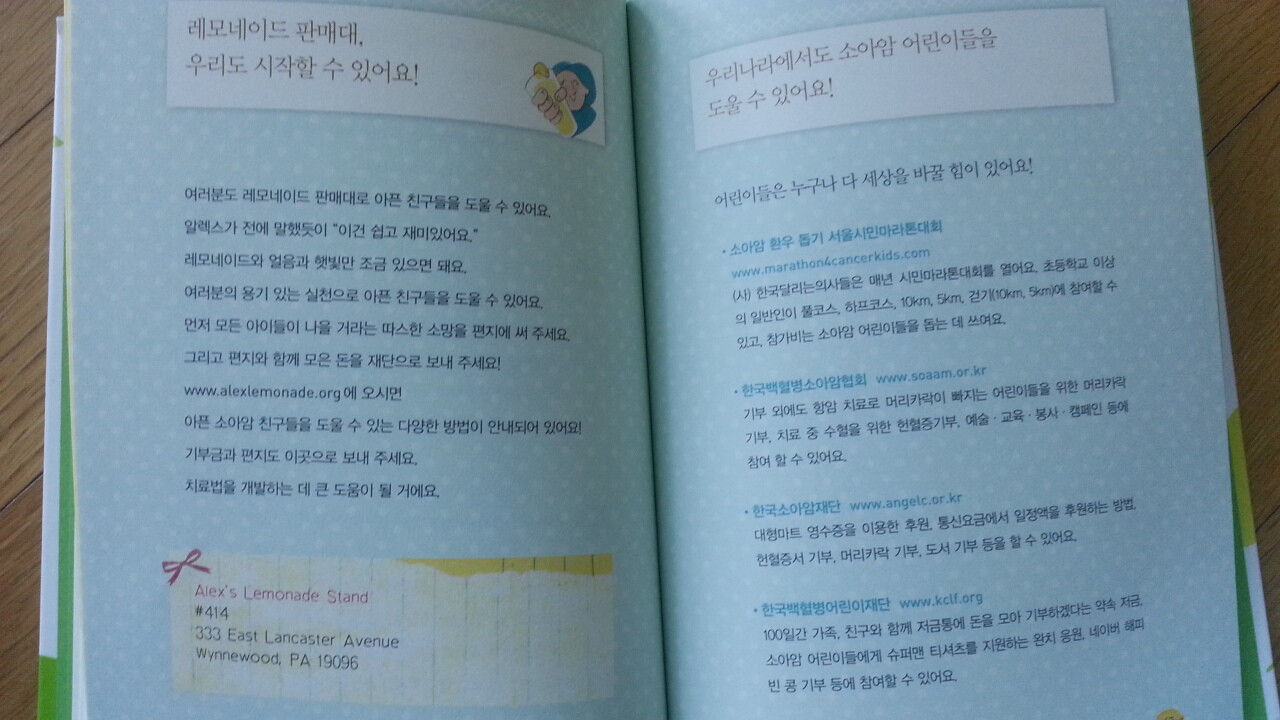 레모네이드 판매대,
우리도 시작할 수 있어요!
여러분도 레모네이드 판매대로 아픈 친구들을 도울 수 있어요.
알렉스가 전에 말했듯이 “이건 쉽고 재미있어요.”
레모네이드와 얼음과 햇빛만 조금 있으면 돼요.
여러분의 용기 있는 실천으로 아픈 친구들을 도울 수 있어요.
먼저 모든 아이들이 나을 거라는 따스한 소망을 편지에 써 주세요.
그리고 편지와 함께 모은 돈을 재단으로 보내 주세요!
www.alexlemonade.org에 오시면
아픈 소아암 친구들을 도울 수 있는 다양한 방법이 안내되어 있어요!
기부금과 편지도 이곳으로 보내 주세요.
치료법을 개발하는 데 큰 도움이 될 거에요.
Alex's Lemonade Stand
#414
333 East Lancaster Avenue
Wynnewood, PA 19096
우리나라에서도 소아암 어린이들을
도울 수 있어요!
어린이들은 누구나 다 세상을 바꿀 힘이 있어요!
• 소아암 환우 돕기 서울시민마라톤대회
www.marathon4cancerkids.com
(사) 한국달리는의사들은 매년 시민마라톤대회를 열어요. 초등학교 이상
의 일반인이 풀코스, 하프코스, 10km, 5km, 걷기(10km, 5km)에 참여할 수
있고, 참가비는 소아암 어린이들을 돕는 데 쓰여요.
• 한국백혈병소아암협회 www.soaam.or.kr
기부 외에도 항암 치료로 머리카락이 빠지는 어린이들을 위한 머리카락
기부, 치료 중 수혈을 위한 헌혈증기부, 예술·교육·봉사·캠페인 등에
참여 할 수 있어요.
• 한국소아암재단 www.angelc.or.kr
대형마트 영수증을 이용한 후원, 통신요금에서 일정액을 후원하는 방법,
헌혈증서 기부, 머리카락 기부, 도서 기부 등을 할 수 있어요.
• 한국백혈병어린이재단 www.kclf.org
100일간 가족, 친구와 함께 저금통에 돈을 모아 기부하겠다는 약속 저금,
소아암 어린이들에게 슈퍼맨 티셔츠를 지원하는 완치 응원, 네이버 해피
빈 콩 기부 등에 참여할 수 있어요.